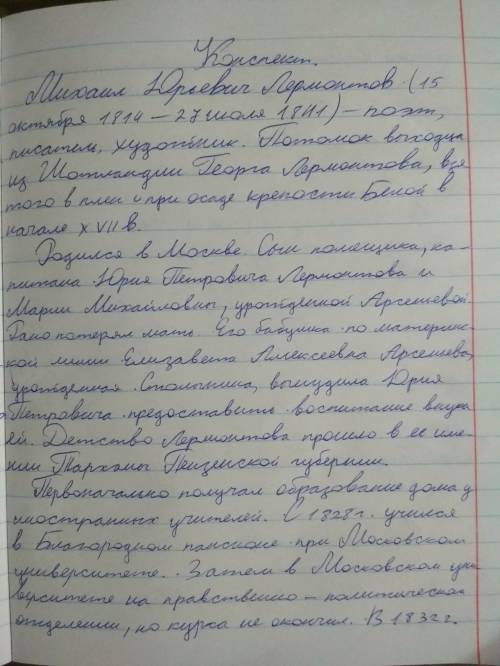 Конспект.
Михаил Юрьевич Лермонтов (15
октября 1814 – 27 июля 1841) – поэт,
писатель, художник. Потомок выходца
из Шотландии Георга Лермонтова, взя
того в плен при осаде крепости Белой в
начале XVII в.
Родился в Москве. Сын помещика, ка-
питана Юрия Петровича Лермонтова и
Марии Михайловны, урождённой Арсеньевой.
Рано потерял мать. Его бабушка по материнс-
кой линии Елизавета Алексеевна Арсеньева,
урождённая Столыпина, вынудила Юрия
Петровича предоставить воспитание внука
ей. Детство Лермонтова прошло в её име-
нии Тарханы Пензенской губернии.
Первоначально получал образование дома у
иностранных учителей. С 1828 г. учился
в Благородном пансионе при Московском
университете. Затем в Московском уни
верситете на нравственно – политическом
отделении, но курса не окончил. В 1832 г.